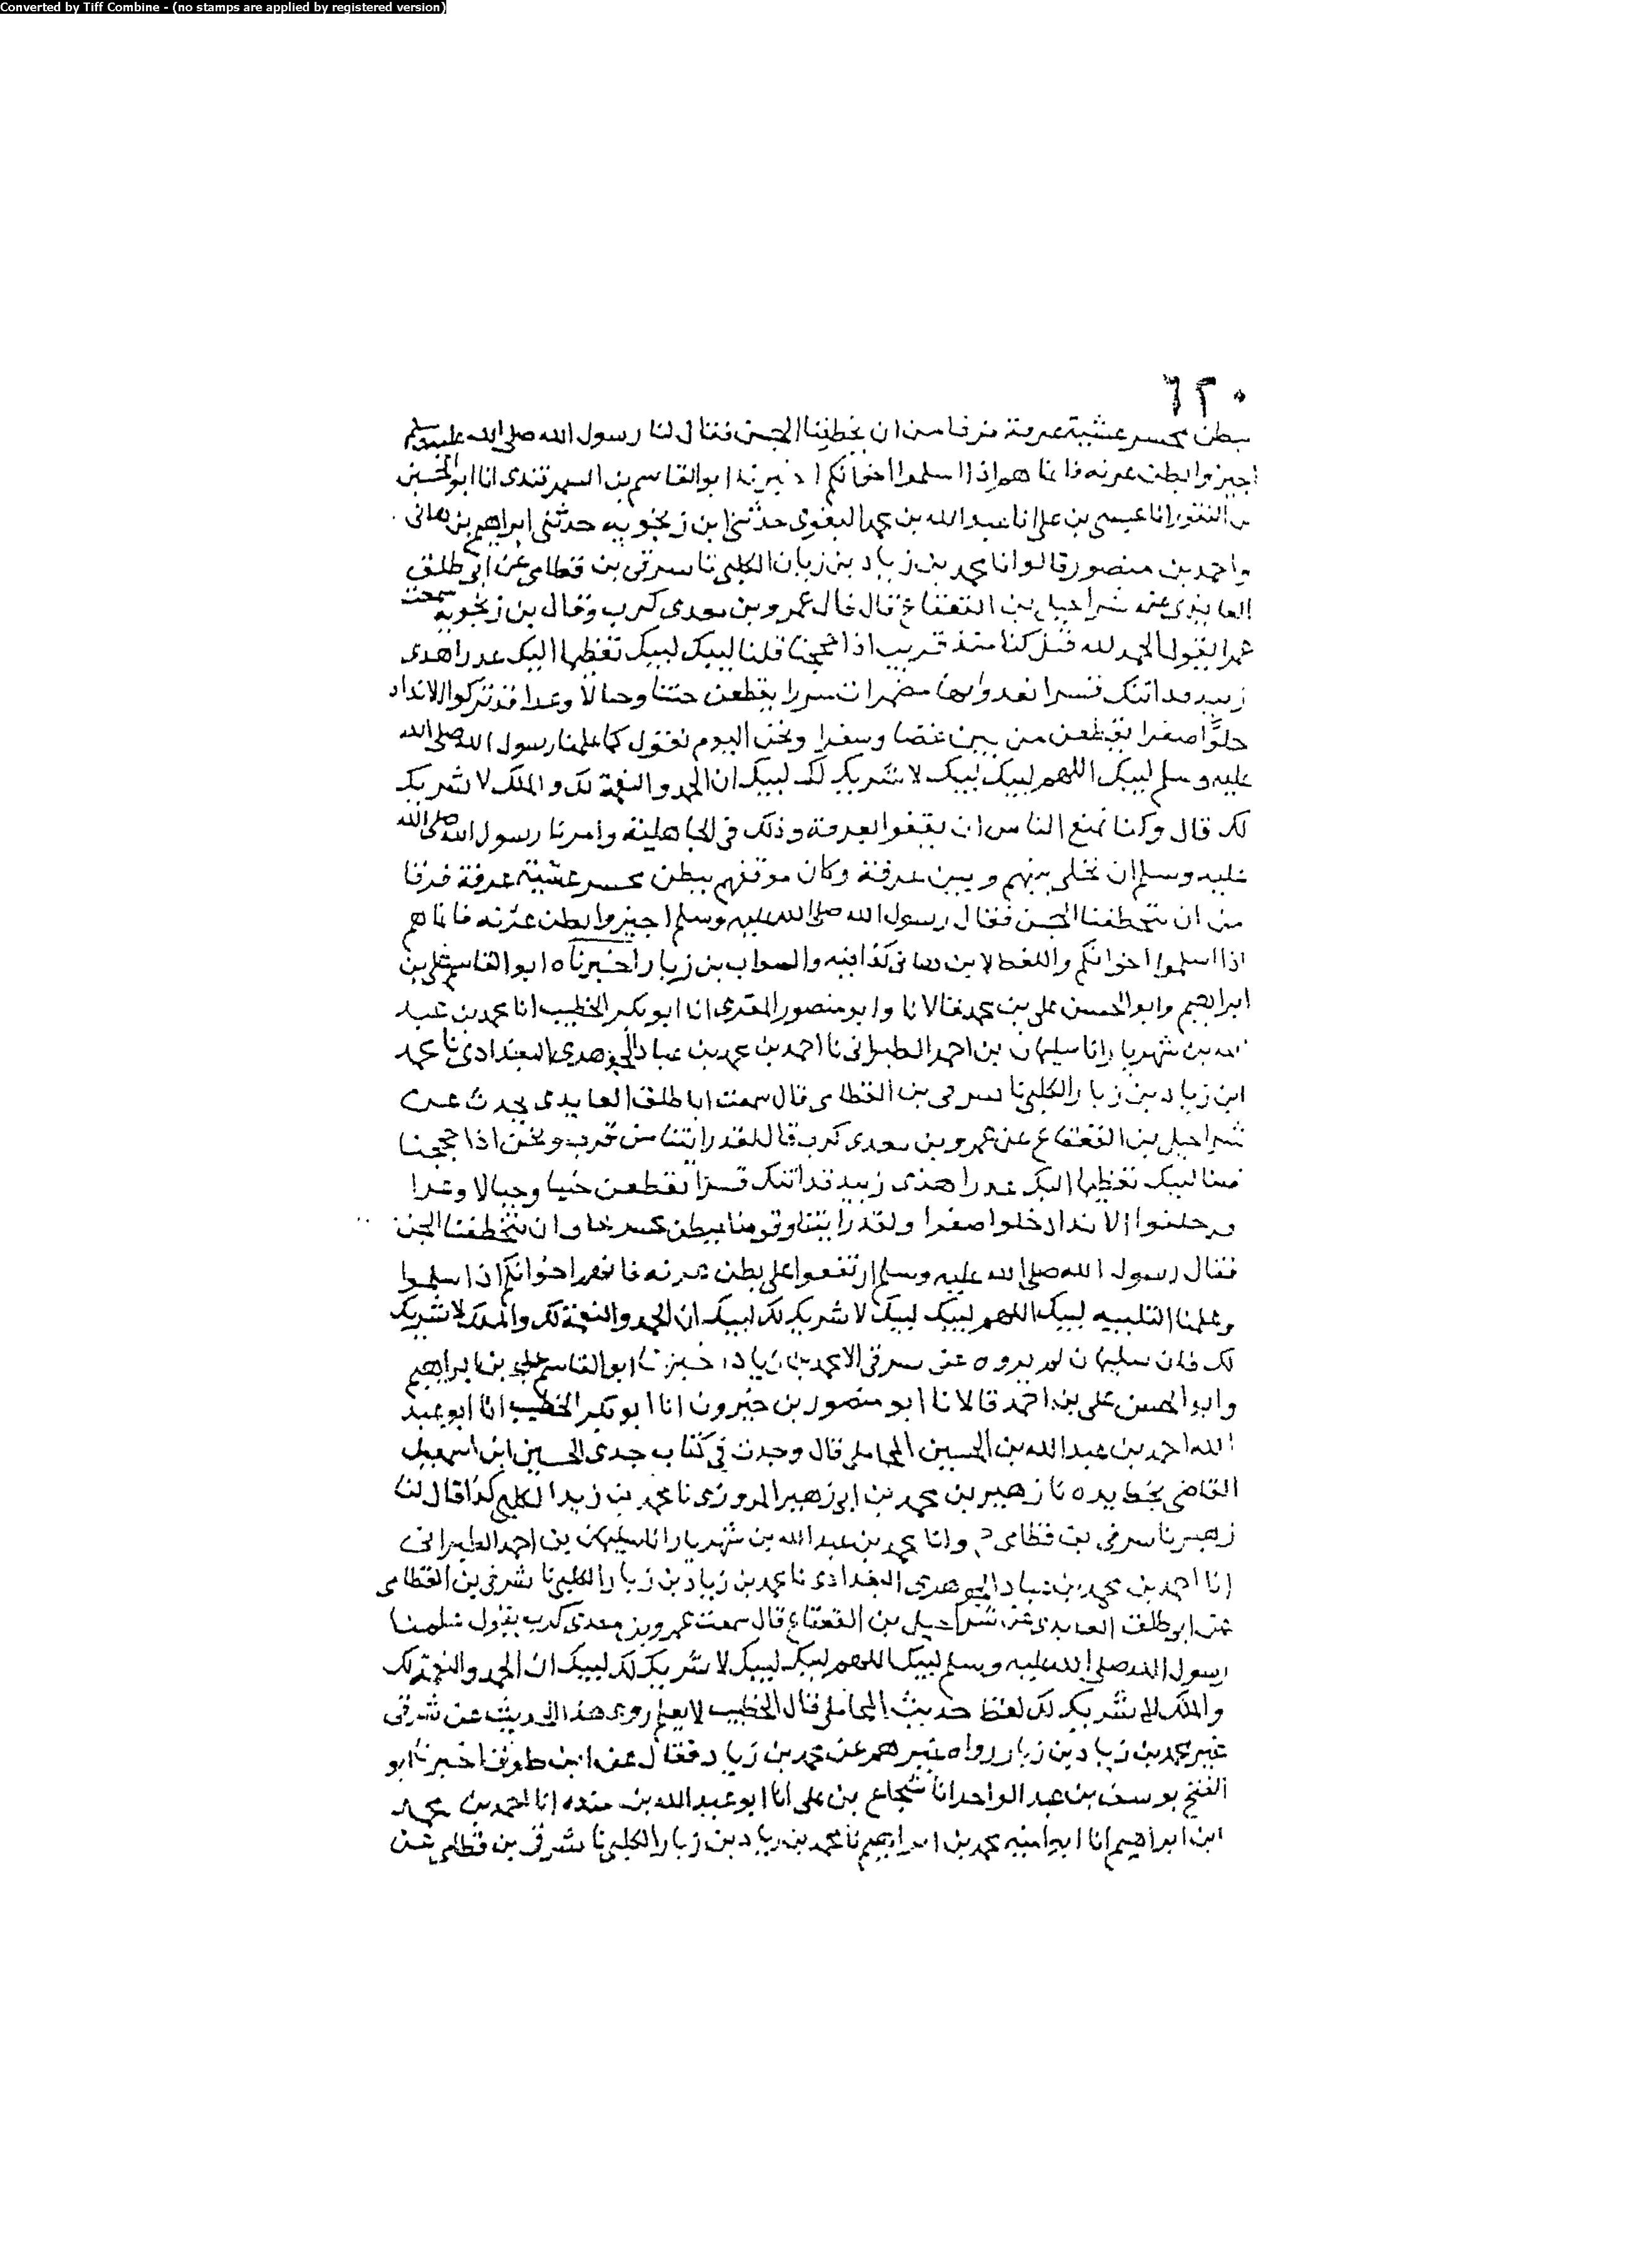 Converted by Tiff Combine - (no stamps are applied by registered version)
٦٢٠
ببطن محسر عشية عرفة فرقا من ان تخطفنا الجن فقال لنا رسول الله صلى الله عليه وسلم
اجيزوا بطن عرنه فانما هم اذا اسلموا اخوانكم اخبرنا ابو القاسم بن السمرقندى انا ابو الحسين
بن النقور انا عيسى بن على انا عبد الله بن محمد البغوى حدثنى ابن زنجويه حدثنى ابراهيم بن هانى
واحمد بن منصور قالوا نا محمد بن زياد بن زبان الكلبى نا سرقى بن قطامى عن ابى طلق
العايذى عن شراحيل بن القعقاع قال قال عمرو بن معدى كرب وقال بن زنجويه سمعت
عمرا يقول الحمد لله كنا منذ قريب اذا حججنا قلنا لبيك لبيك تعظيما اليك عذرا هذى
زبيد قد اتتك قسرا تغدوا بها مضمرات سررا يقطعن خبتا وجبالا وعرا قد تركوا الانداد
خلوا صفرا يقطعن من بين غضا وسمرا ونحن اليوم نقول كما علمنا رسول الله صلى الله
عليه وسلم لبيك اللهم لبيك لبيك لا شريك لك لبيك ان الحمد والنعمة لك والملك لا شريك
لك قال وكنا نمنع الناس ان يقفوا بعرفة وذلك فى الجاهلية وامرنا رسول الله صلى الله
عليه وسلم ان نخلى بينهم وبين عرفة وكان موقفهم ببطن محسر عشية عرفة فرقا
من ان تتخطفنا الجن فقال رسول الله صلى الله عليه وسلم اجيزوا بطن عرنه فانما هم
اذا اسلموا اخوانكم واللفظ لابن هانى كذا فيه والصواب بن زبار اخبرناه ابو القاسم على بن
ابراهيم وابو الحسن على بن محمد قالا نا وابو منصور المقرى انا ابو بكر الخطيب انا محمد بن عبد
الله بن شهريار انا سليمان بن احمد الطبرانى نا احمد بن محمد بن عباد الجوهرى البغدادى نا محمد
ابن زياد بن زبار الكلبى نا سرقى بن القطامى قال سمعت ابا طلق العايدى يحدث عن
شراحيل بن القعقاع عن عمرو بن معدى كرب قال لقد رايتنا من قرب ونحن اذا حججنا
قلنا لبيك تعظيما اليك عذرا هذى زبيد قد اتتك قسرا يقطعن خبتا وجبالا وعرا
قد خلفوا الانداد خلوا صفرا ولقد رايتنا وقوفنا ببطن محسر نخاف ان تتخطفنا الجن
فقال رسول الله صلى الله عليه وسلم ارتفعوا على بطن عرنه فانهم اخوانكم اذا اسلموا
وعلمنا التلبيه لبيك اللهم لبيك لبيك لا شريك لك لبيك ان الحمد والنعمة لك والملك لا شريك
لك قال سليمان لم يروه عن سرقى الا محمد بن زياد اخبرنا ابو القاسم على بن ابراهيم
وابو الحسن على بن احمد قالا نا ابو منصور بن خيرون انا ابو بكر الخطيب انا ابو عبد
الله احمد بن عبد الله بن الحسين المحاملى قال وجدت فى كتاب جدى الحسين ابن اسمعيل
القاضى بخط يده نا زهير بن محمد بن ابى زهير المروزى نا محمد بن زيد الكلبى كذا قال لنا
زهير نا سرقى بن قطامى ح وانا محمد بن عبد الله بن شهريار انا سليمان بن احمد الطبرانى
انا احمد بن محمد بن عباد الجوهرى البغدادى نا محمد بن زياد بن زبار الكلبى نا شرقى بن القطامى
عن ابو طلق العايدى عن شراحيل بن القعقاع قال سمعت عمرو بن معدى كرب يقول علمنا
رسول الله صلى الله عليه وسلم لبيك اللهم لبيك لبيك لا شريك لك لبيك ان الحمد والنعمة لك
والملك لا شريك لك لفظ حديث المحاملى قال الخطيب لا يعلم روى هذا الحديث عن شرقى
غير محمد بن زياد بن زبار رواه غيرهم عن محمد بن زياد فقال عن ابن طوق اخبرنا ابو
الفتح يوسف بن عبد الواحد انا شجاع بن على انا ابو عبد الله بن منده انا احمد بن محمد
ابن ابراهيم انا ابو امية محمد بن ابراهيم نا محمد بن زياد بن زبار الكلبى نا شرقى بن قطامى عن